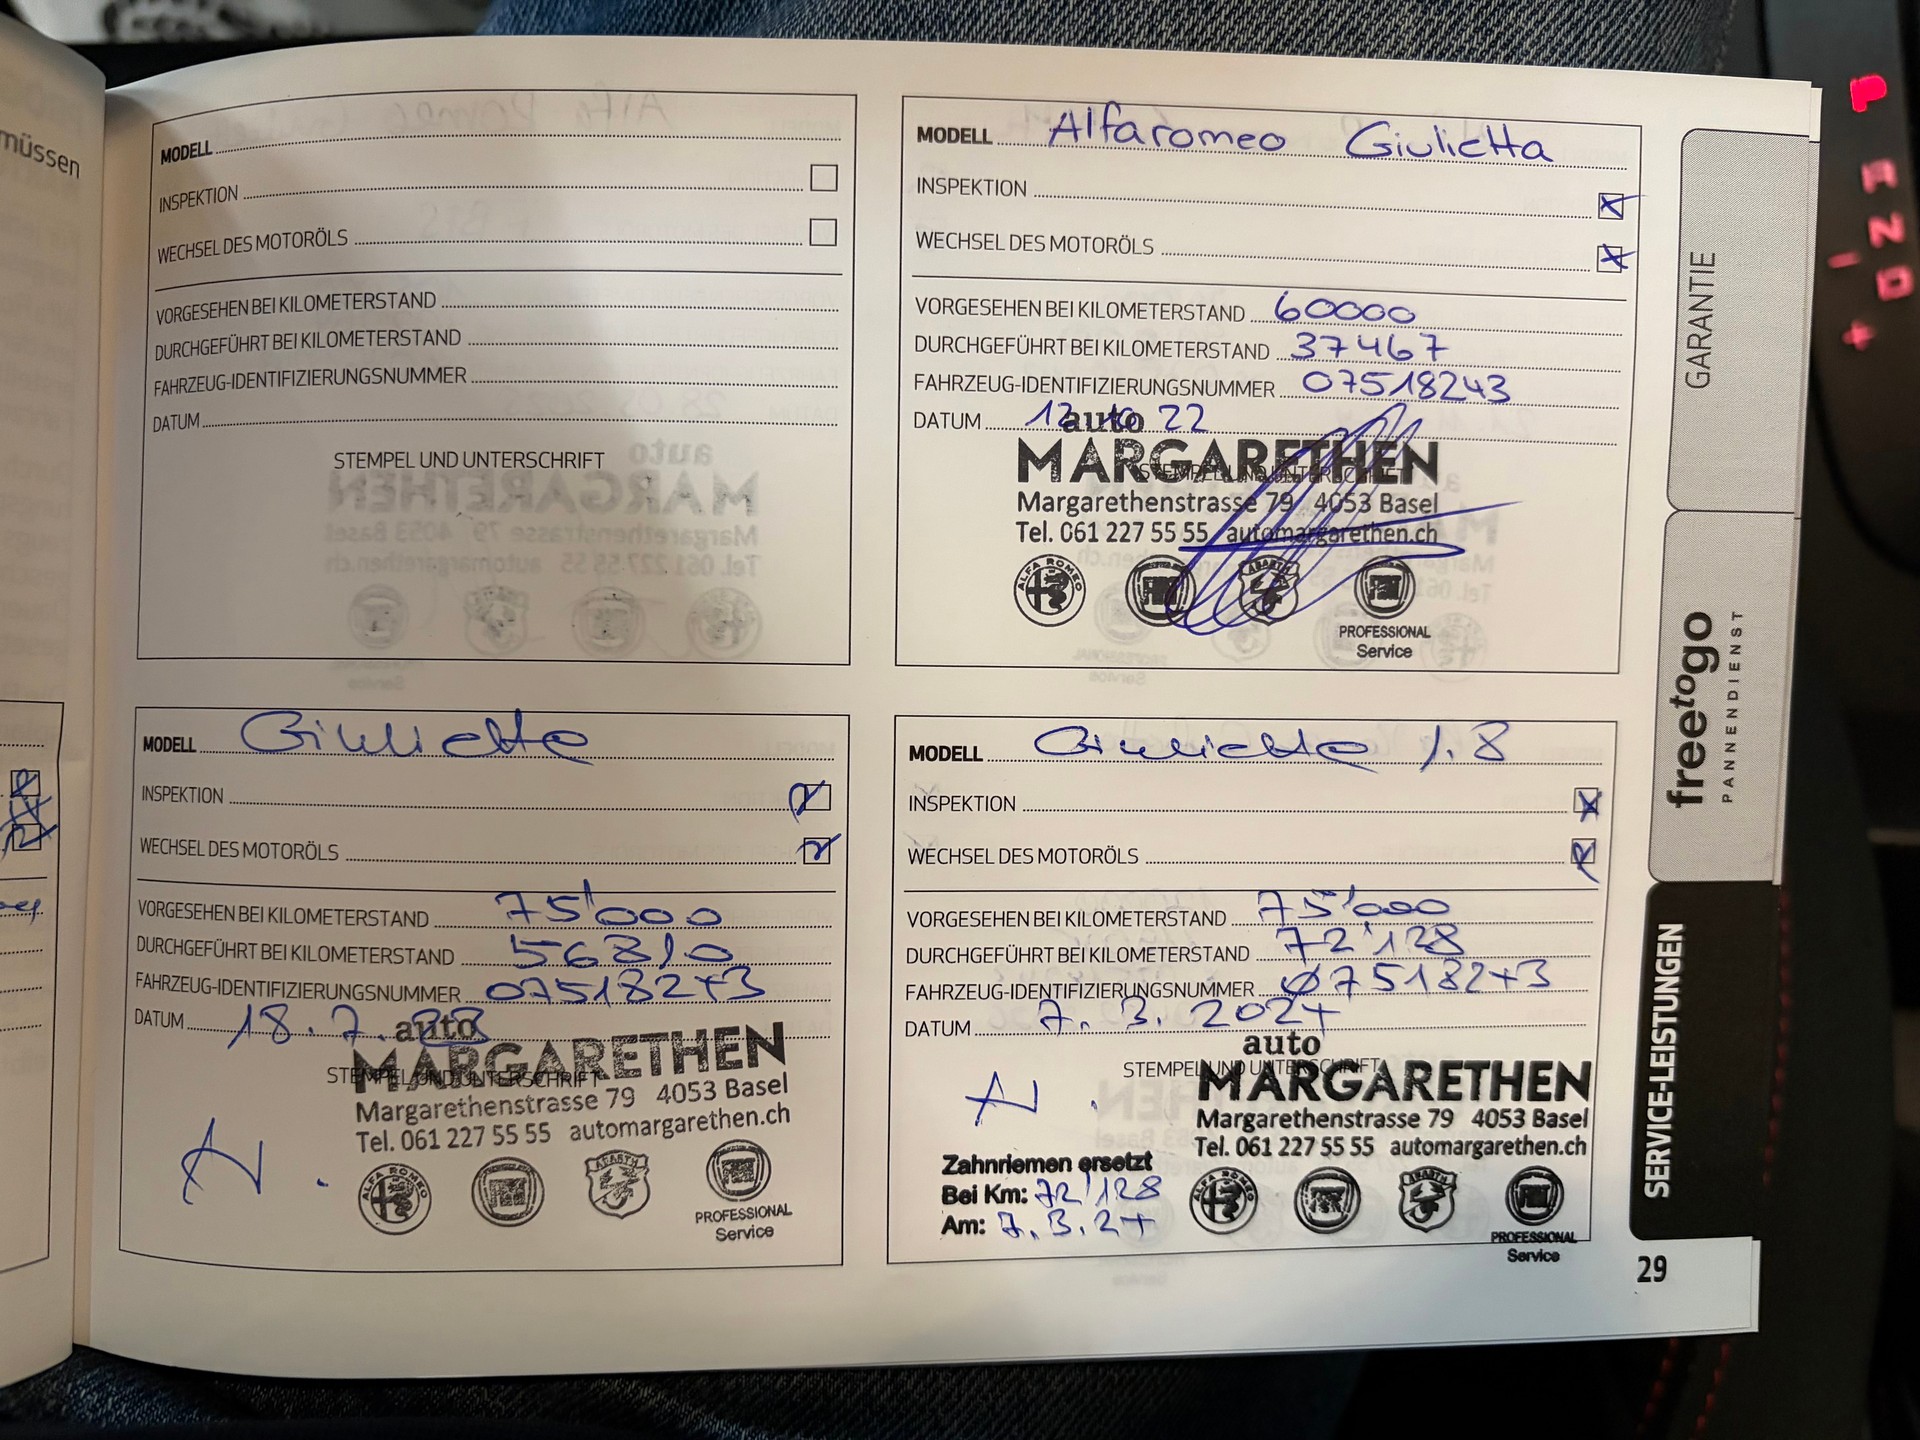 müssen
MODELL
INSPEKTION
WECHSEL DES MOTORÖLS
VORGESEHEN BEI KILOMETERSTAND
DURCHGEFÜHRT BEI KILOMETERSTAND
FAHRZEUG-IDENTIFIZIERUNGSNUMMER
DATUM
STEMPEL UND UNTERSCHRIFT
MODELL Alfaromeo Giulietta
INSPEKTION
WECHSEL DES MOTORÖLS
VORGESEHEN BEI KILOMETERSTAND 60000
DURCHGEFÜHRT BEI KILOMETERSTAND 37467
FAHRZEUG-IDENTIFIZIERUNGSNUMMER 07518243
DATUM 12 10 22
auto
MARGARETHEN
STEMPEL UND UNTERSCHRIFT
Margarethenstrasse 79 4053 Basel
Tel. 061 227 55 55 automargarethen.ch
ALFA ROMEO
FIAT
ABARTH
FIAT
PROFESSIONAL
Service
MODELL Giulietta
INSPEKTION
WECHSEL DES MOTORÖLS
VORGESEHEN BEI KILOMETERSTAND 75'000
DURCHGEFÜHRT BEI KILOMETERSTAND 56810
FAHRZEUG-IDENTIFIZIERUNGSNUMMER 07518243
DATUM 18.7.
auto
MARGARETHEN
STEMPEL UND UNTERSCHRIFT
Margarethenstrasse 79 4053 Basel
Tel. 061 227 55 55 automargarethen.ch
ALFA ROMEO
FIAT
ABARTH
FIAT
PROFESSIONAL
Service
MODELL Giulietta 1.8
INSPEKTION
WECHSEL DES MOTORÖLS
VORGESEHEN BEI KILOMETERSTAND 75'000
DURCHGEFÜHRT BEI KILOMETERSTAND 72'128
FAHRZEUG-IDENTIFIZIERUNGSNUMMER 07518243
DATUM 7.3.2024
auto
STEMPEL UND UNTERSCHRIFT
MARGARETHEN
Margarethenstrasse 79 4053 Basel
Tel. 061 227 55 55 automargarethen.ch
Zahnriemen ersetzt
Bei Km: 72'128
Am: 7.3.24
ALFA ROMEO
FIAT
ABARTH
FIAT
PROFESSIONAL
Service
GARANTIE
freetogo
PANNENDIENST
SERVICE-LEISTUNGEN
29
P
R
N
D
+